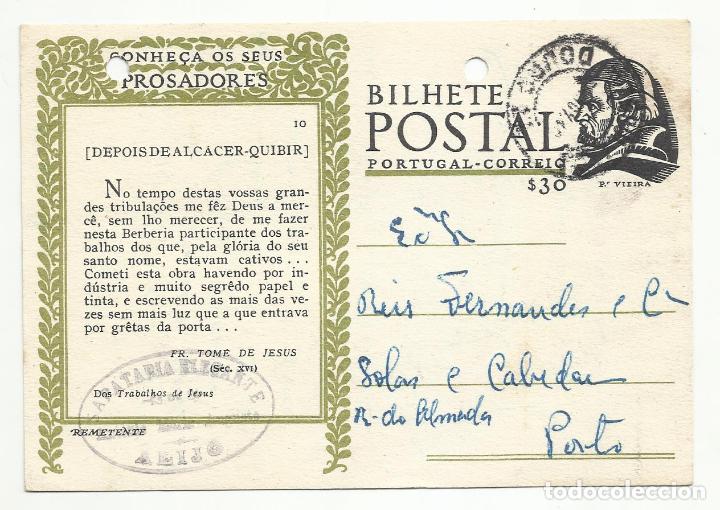 CONHEÇA OS SEUS
PROSADORES
10
[DEPOIS DE ALCÁCER-QUIBIR]
No tempo destas vossas gran-
des tribulações me fêz Deus a mer-
cê, sem lho merecer, de me fazer
nesta Berberia participante dos tra-
balhos dos que, pela glória do seu
santo nome, estavam cativos . . .
Cometi esta obra havendo por in-
dústria e muito segrêdo papel e
tinta, e escrevendo as mais das ve-
zes sem mais luz que a que entrava
por grêtas da porta . . .
FR. TOMÉ DE JESUS
(Séc. XVI)
Dos Trabalhos de Jesus
REMETENTE
SAPATARIA ELEGANTE
ALIJÓ
BILHETE
POSTAL
PORTUGAL-CORREIO
$30
P.e VIEIRA
DOURO
Reis Fernandes e Cª
Solas e Cabedaes
R. do Almada
Porto